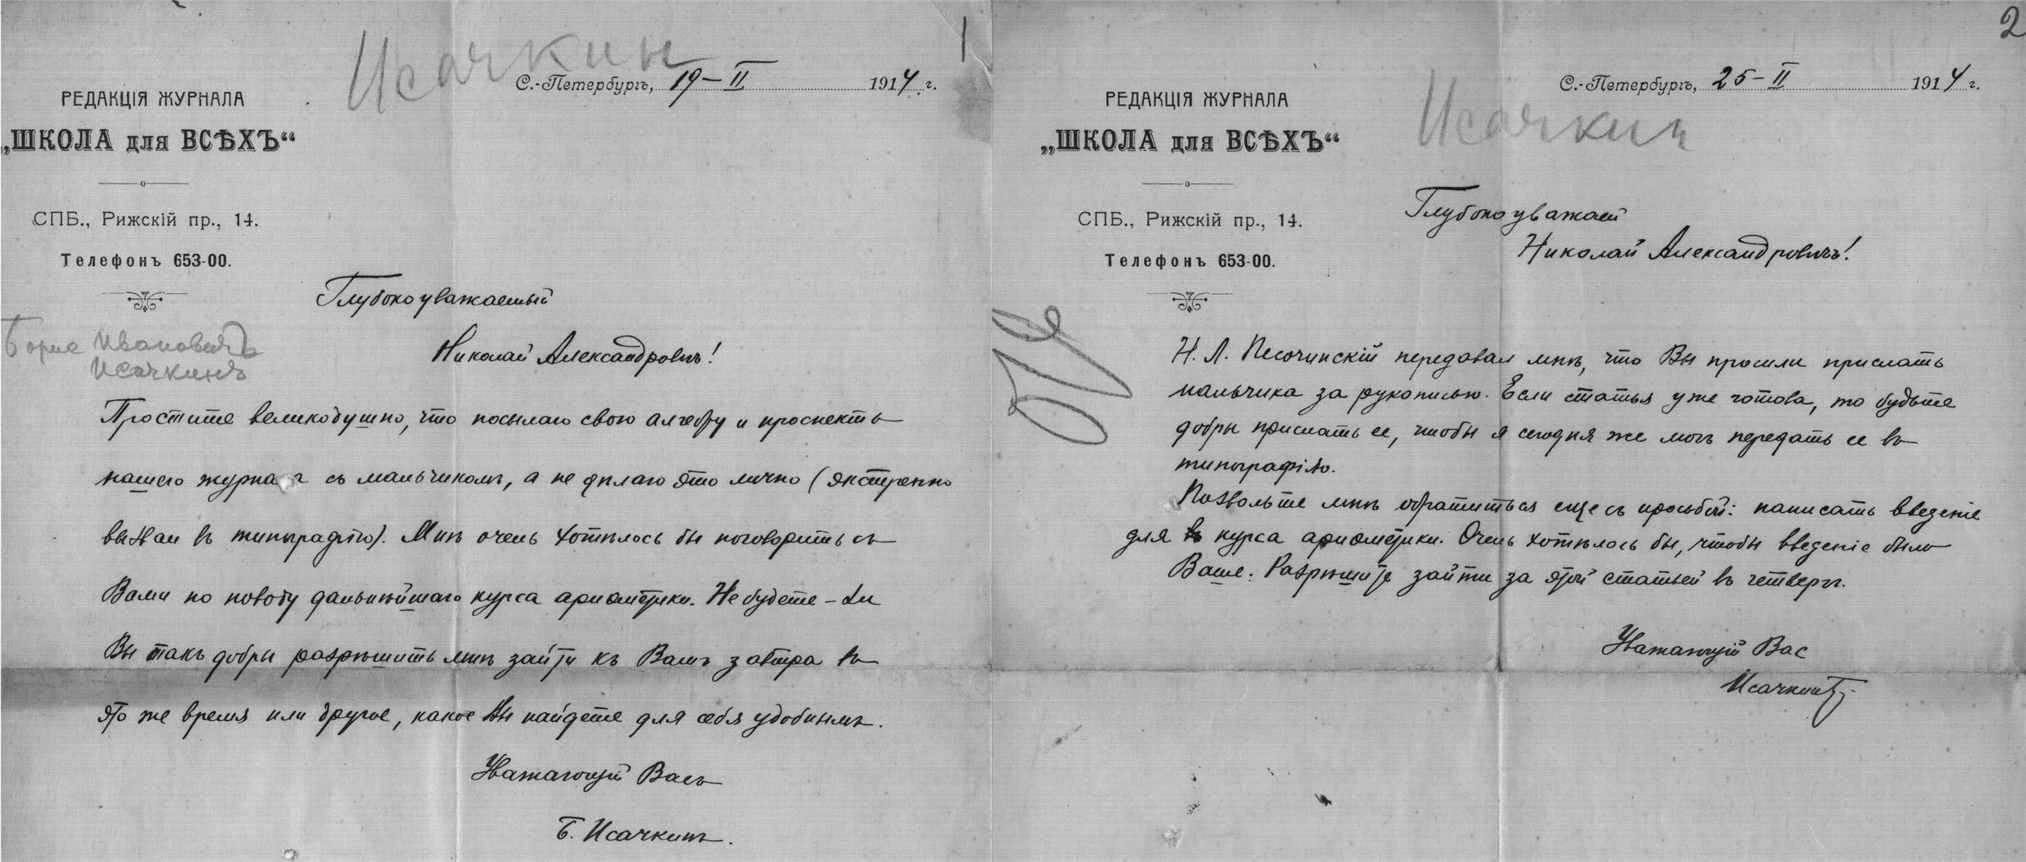 1
Исачкин
С.-Петербургъ, 19–II 1914 г.
РЕДАКЦІЯ ЖУРНАЛА
„ШКОЛА для ВСѢХЪ“
СПБ., Рижскій пр., 14.
Телефонъ 653-00.
Борис Ивановичъ
Исачкинъ
Глубокоуважаемый
Николай Александровичъ!
Простите великодушно, что посылаю свою алгебру и проспектъ
нашего журнала съ мальчикомъ, а не дѣлаю это лично (экстренно
вызван въ типографію). Мнѣ очень хотѣлось бы поговорить съ
Вами по поводу дальнѣйшаго курса ариѳметики. Не будете-ли
Вы такъ добры разрѣшить мнѣ зайти къ Вамъ завтра въ
это же время или другое, какое Вы найдете для себя удобнымъ.
Уважающій Васъ
Б. Исачкинъ.
2
С.-Петербургъ, 25–II 1914 г.
РЕДАКЦІЯ ЖУРНАЛА
„ШКОЛА для ВСѢХЪ“
Исачкин
СПБ., Рижскій пр., 14.
Телефонъ 653-00.
Глубокоуважаем
Николай Александровичъ!
Н. Л. Песочинскій передавал мнѣ, что Вы просили прислать
мальчика за рукописью. Если статья уже готова, то будьте
добры прислать ее, чтобы я сегодня же могъ передать ее въ
типографію.
Позвольте мнѣ обратиться еще съ просьбой: написать введеніе
для курса ариѳметики. Очень хотѣлось бы, чтобы введеніе было
Ваше. Разрѣшите зайти за этой статьей въ четвергъ.
Уважающій Вас
Исачкин Б.